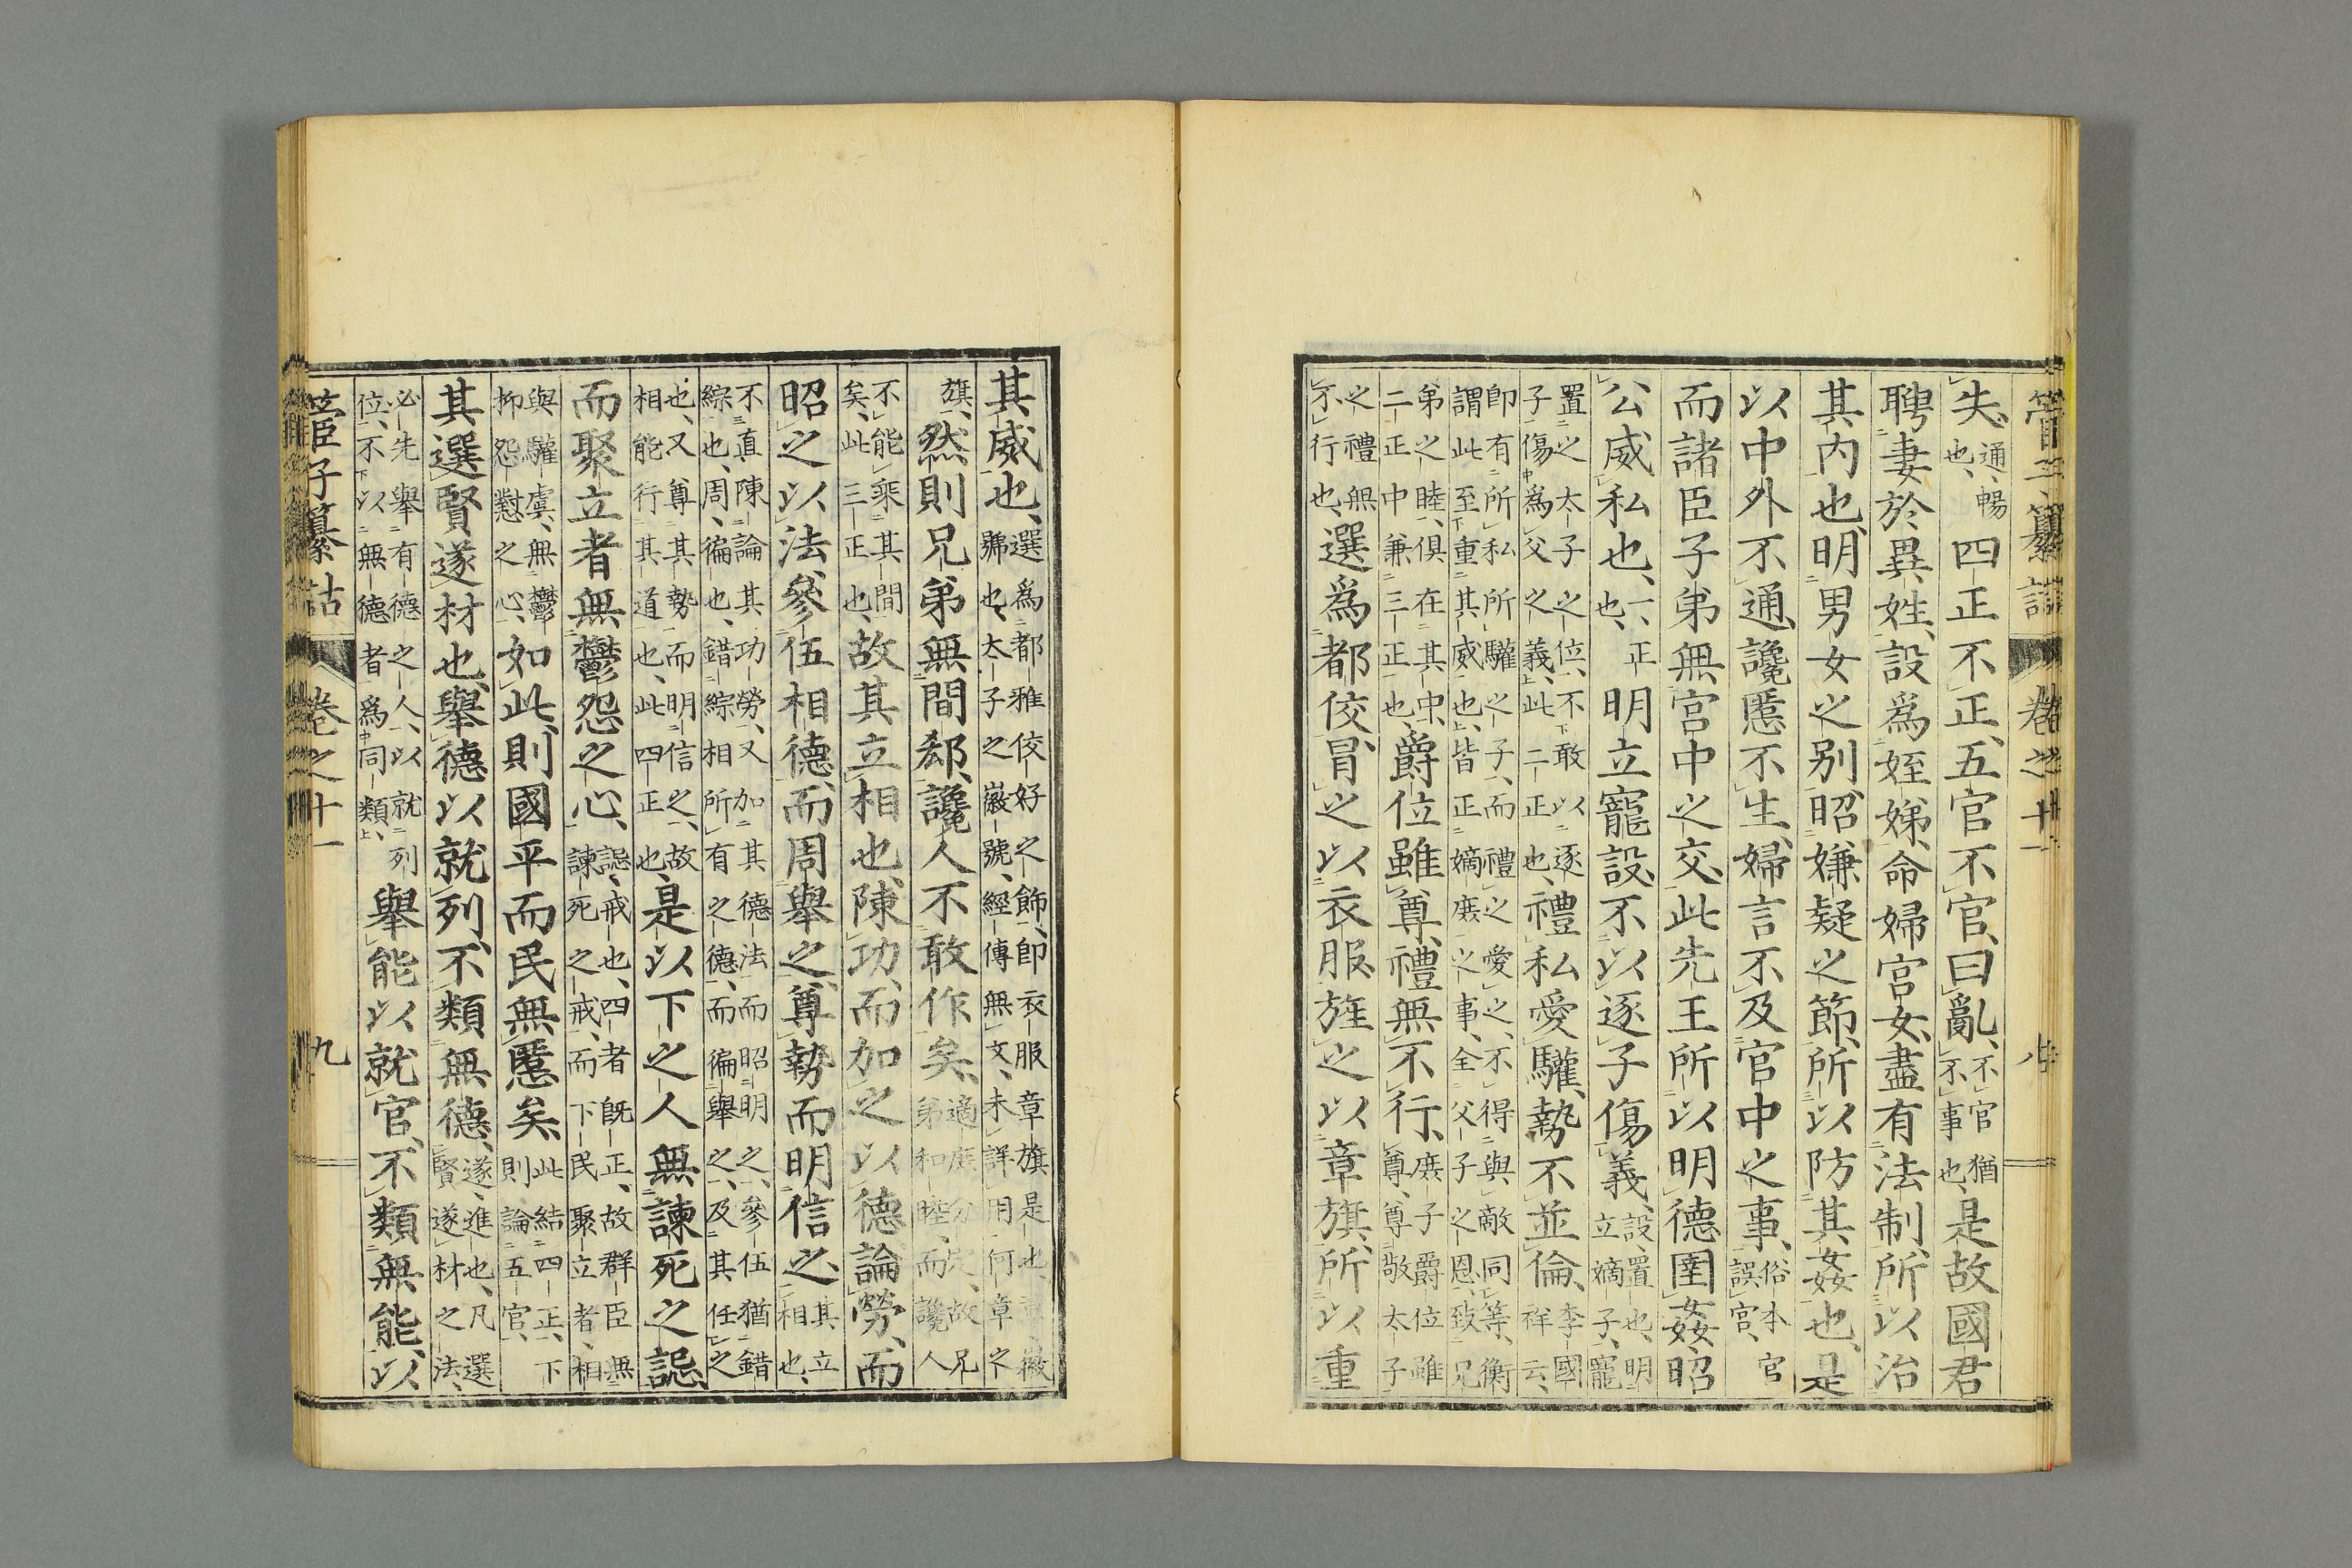 管子纂詁 卷之十一 八
失、通、暢也、四正不正、五官不官、曰亂、不官猶不事也、是故國君
聘妻於異姓、設爲姪娣命婦宮女、盡有法制、所以治
其內也、明男女之別、昭嫌疑之節、所以防其姦也、是
以中外不通、讒慝不生、婦言不及官中之事、俗本官誤官、
而諸臣子弟無宮中之交、此先王所以明德圉姦昭
公威私也、一、正也、明立寵設、不以逐子傷義、設、置也、明立嫡子、寵
置之太子之位、不敢以逐子傷爲父之義、此二正也、禮私愛驩、勢不並倫、李國祥云、
卽有所私所驩之子、而禮之愛之、不得與敵同等、衡謂此至重其威也、皆正嫡庶之事、全父子之恩、致兄
弟之睦、俱在其中、二正中兼三正也、爵位雖尊、禮無不行、庶子爵位雖尊、尊敬太子
之禮無不行也、選爲都佼、冐之以衣服、旌之以章旗、所以重
其威也、選爲都雅佼好之飾、卽衣服章旗是也、章、徽號也、太子之徽號、經傳無文、未詳用何章之
旗、然則兄弟無間郄、讒人不敢作矣、適庶分定、故兄弟和睦、而讒人
不能乘其間矣、此三正也、故其立相也、陳功、而加之以德、論勞、而
昭之以法、參伍相德、而周舉之、尊勢而明信之、其立相也、
不直陳論其功勞、又加其德法而昭明之、參伍猶錯綜也、周、徧也、錯綜相所有之德、而徧舉之、及其任之
也、又尊其勢而明信之、故相能行其道也、此四正也、是以下之人無諫死之誋、
而聚立者無鬱怨之心、誋、戒也、四者旣正、故群臣無諫死之戒、而下民聚立者、相
與驩虞、無鬱抑怨懟之心、如此、則國平而民無慝矣、此結四正、下則論五官、
其選賢遂材也、舉德以就列、不類無德、遂、進也、凡選賢遂材之法、
必先舉有德之人、以就列位、不以無德者爲同類、舉能以就官、不類無能、以
管子纂詁 卷之十一 九